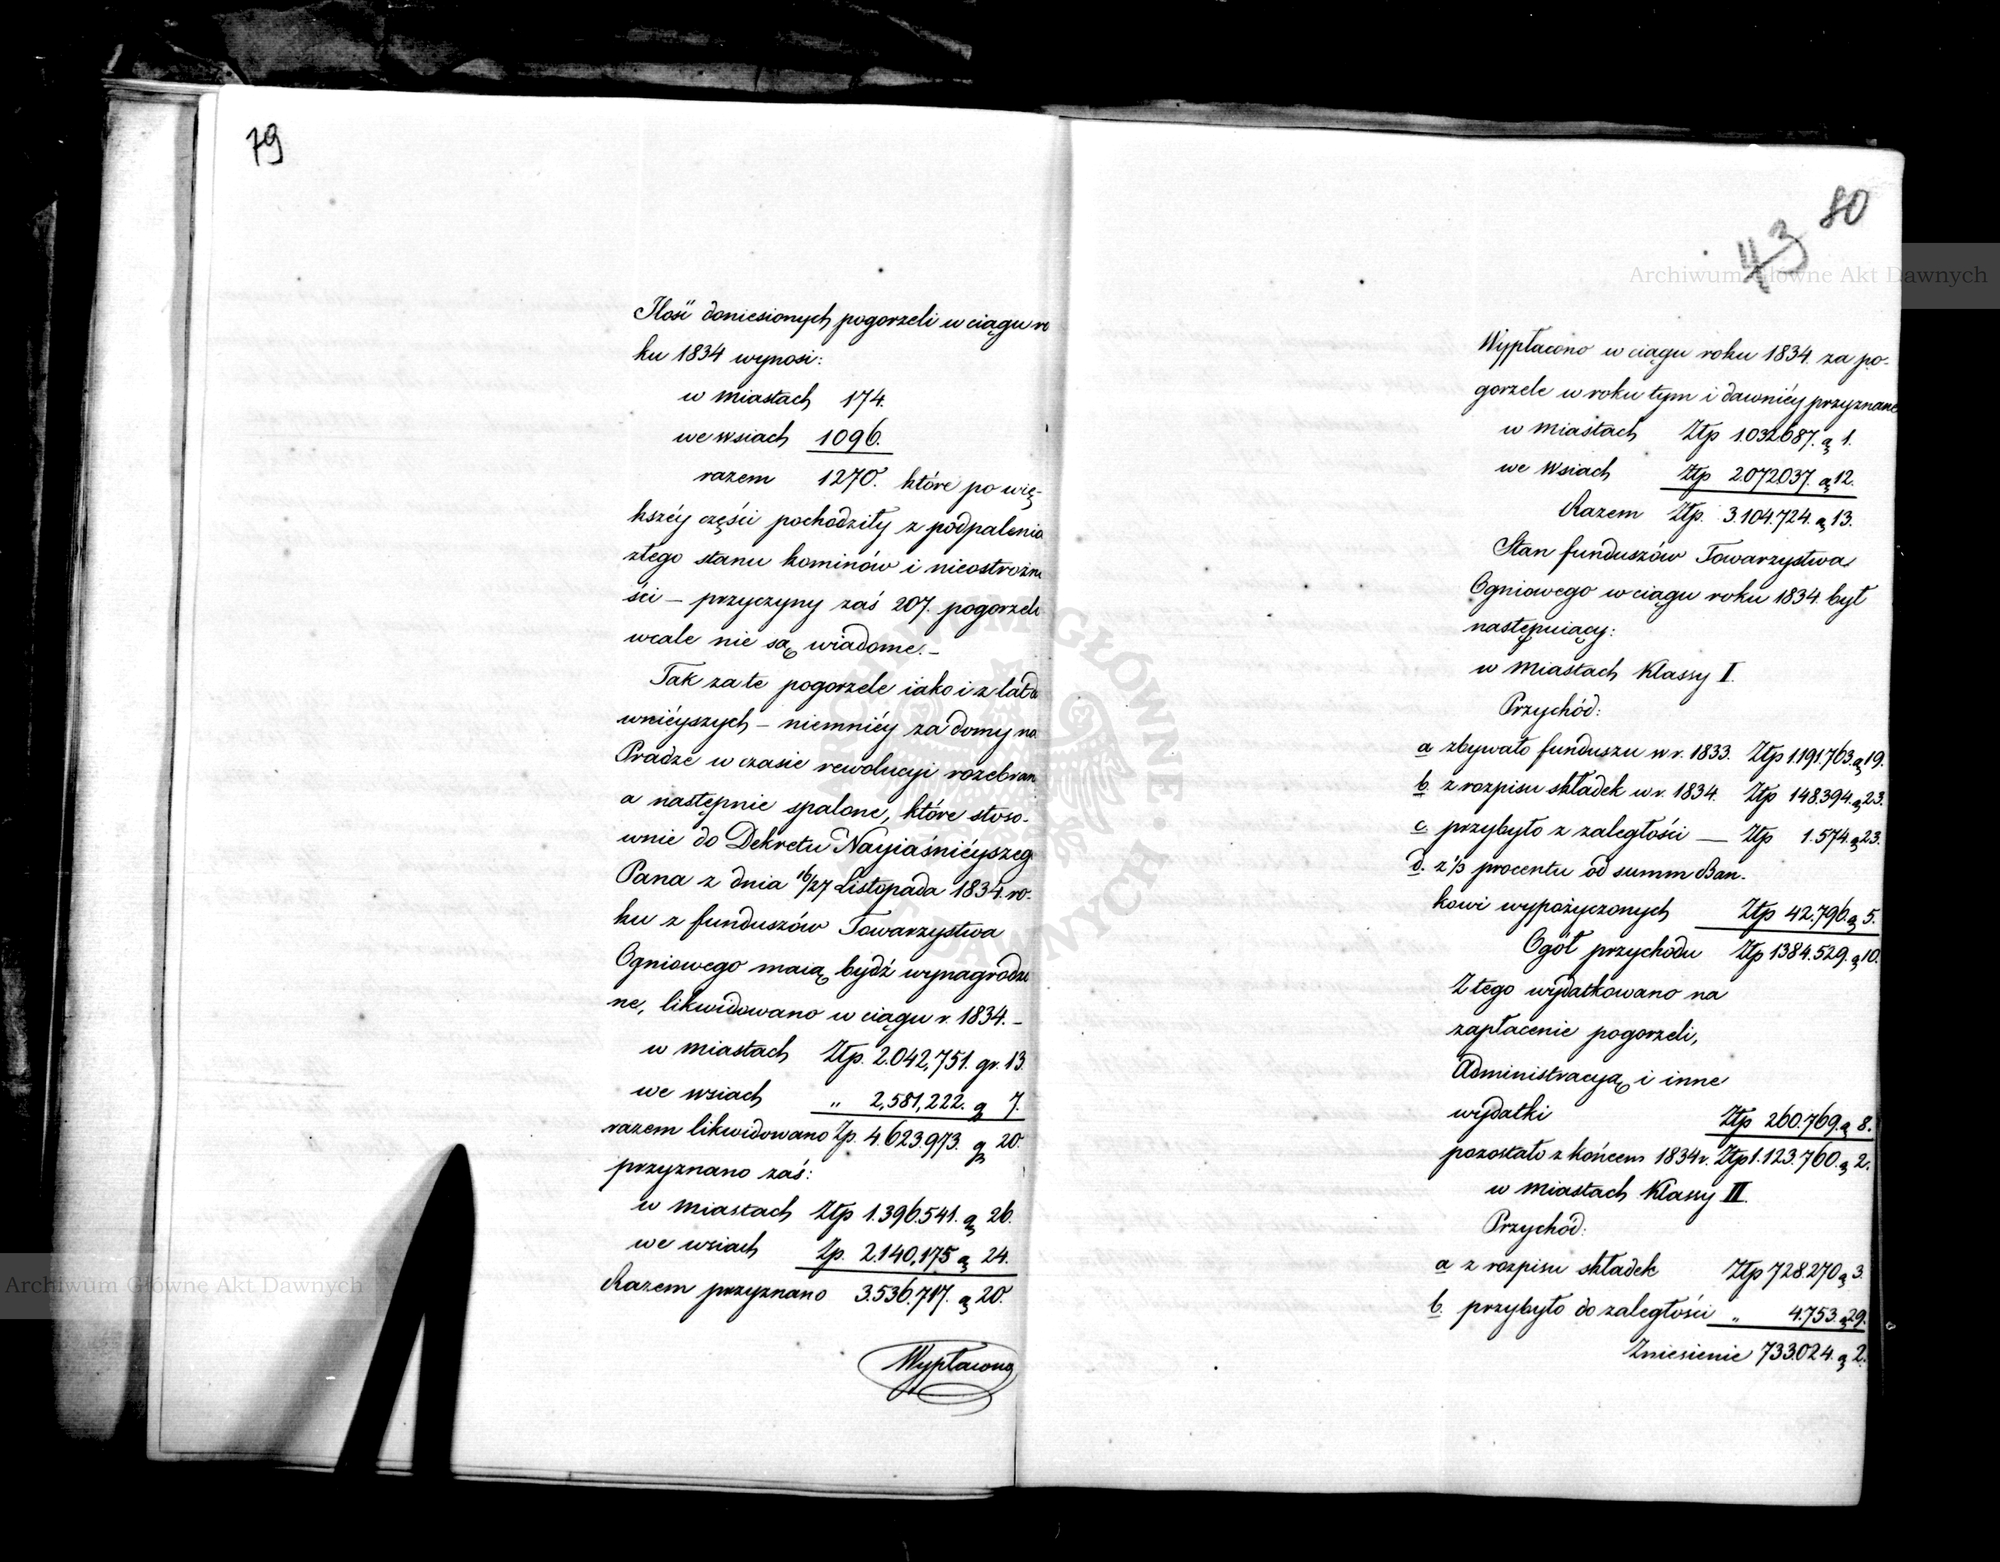 79
Ilość doniesionych pogorzeli w ciągu ro
ku 1834 wynosi:
w miastach 174.
we wsiach 1096.
razem 1270. które po wię-
kszéy części pochodziły z podpalenia
złego stanu kominów i nieostrożno
ści — przyczyny zaś 207. pogorzeli
wcale nie są wiadome. —
Tak za te pogorzele iako i z lat da
wniéyszych — niemniéy za domy na
Pradze w czasie rewolucyi rozebran
a następnie spalone, które stoso-
wnie do Dekretu Nayiaśniéyszeg
Pana z dnia 16/27 Listopada 1834. ro-
ku z funduszów Towarzystwa
Ogniowego maią bydź wynagrodzo
ne, likwidowano w ciągu r. 1834. —
w miastach Złp. 2.042,751. gr. 13.
we wsiach „ 2,581,222. g 7.
razem likwidowano Zp. 4.623.973. g 20.
przyznano zaś:
w miastach Złp 1.396.541. g 26.
we wsiach Zp. 2.140,175 g 24.
Razem przyznano 3.536.717. g 20.
Wypłacono
80
43
Wypłacono w ciągu roku 1834. za po-
gorzele w roku tym i dawniéy przyznane
w miastach Złp 1.032687. g 1.
we wsiach Złp 2.072037. g 12.
Razem Złp. 3.104.724. g 13.
Stan funduszów Towarzystwa
Ogniowego w ciągu roku 1834. był
następuiący:
w miastach Klassy I.
Przychód:
a zbywało funduszu w r. 1833. Złp 1.191.763. g 19.
b. z rozpisu składek w r. 1834. Złp 148.394. g 23.
c. przybyło z zaległości — Złp 1.574. g 23.
d. z procentu od summ Ban-
kowi wypożyczonych Złp 42.796. g 5.
Ogół przychodu Złp 1384.529. g 10.
Z tego wydatkowano na
zapłacenie pogorzeli,
Administracyą i inne
wydatki Złp 260.769. g 8.
pozostało z końcem 1834 r. Złp 1.123.760. g 2.
w miastach Klassy II.
Przychód:
a z rozpisu składek Złp 728.270 g 3.
b. przybyło do zaległości „ 4.753. g 29.
Zniesienie 733.024. g 2.
Archiwum Główne Akt Dawnych
Archiwum Główne Akt Dawnych
ARCHIWUM GŁÓWNE AKT DAWNYCH